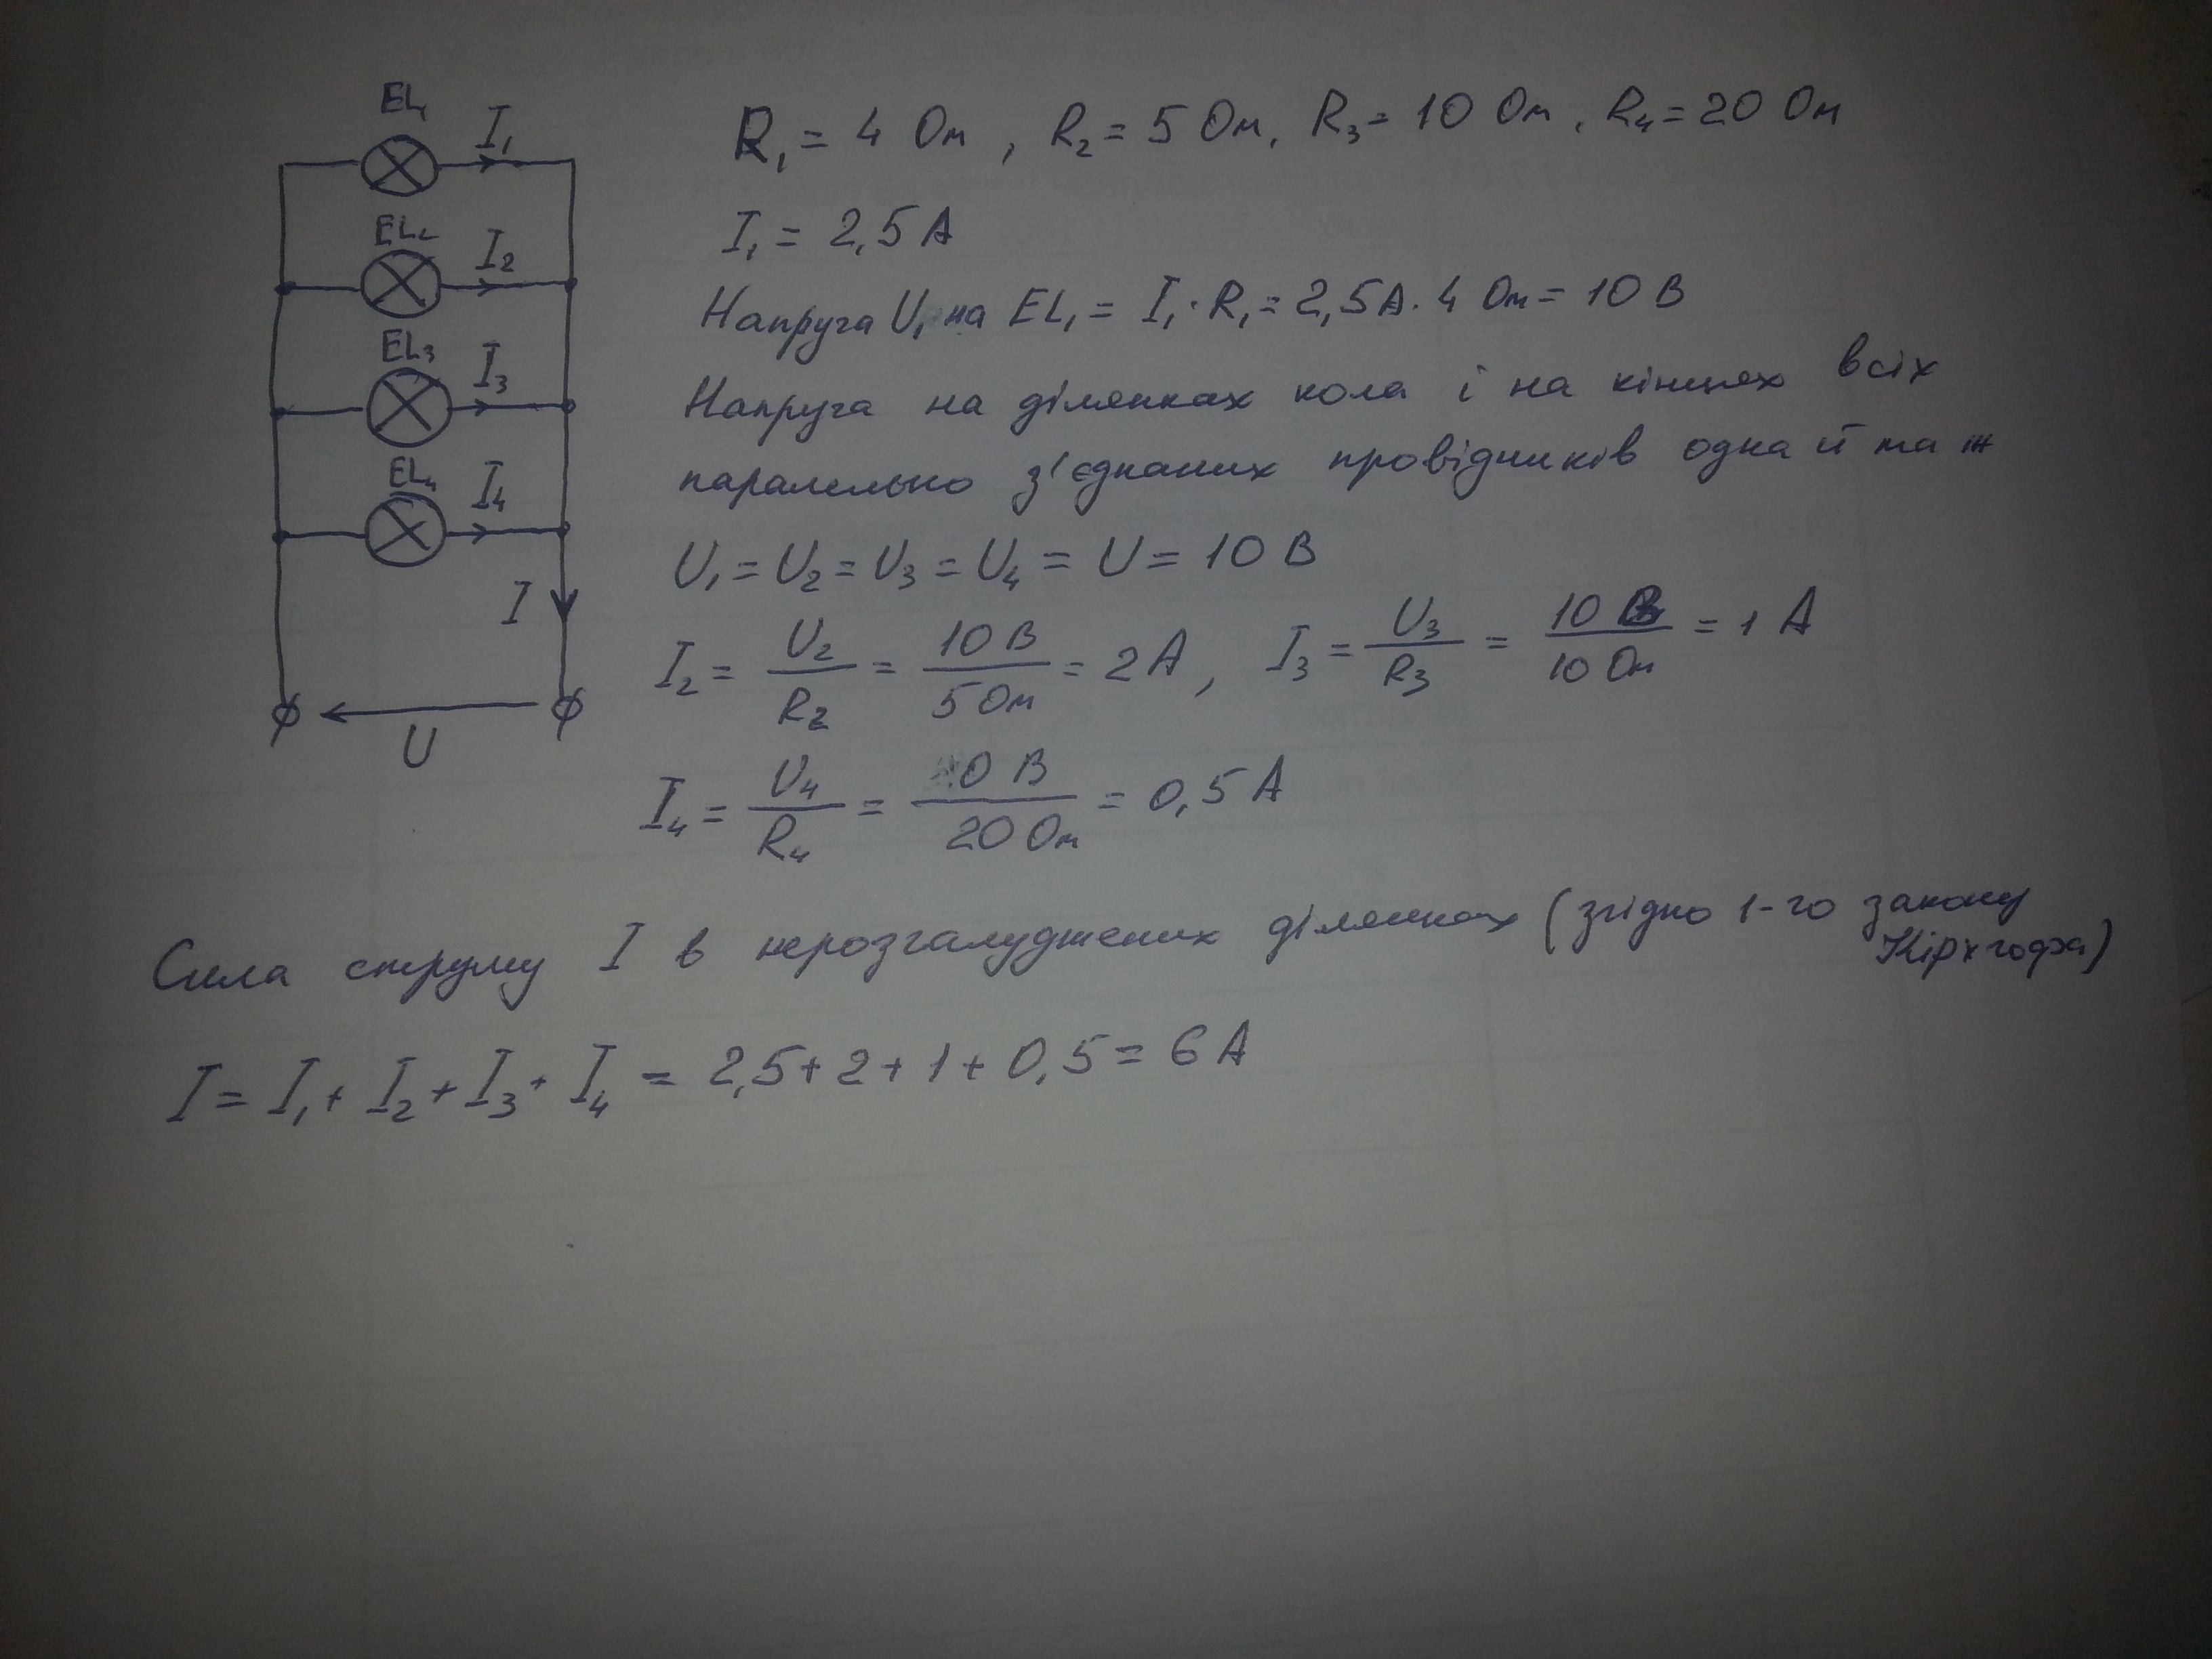 EL₁
I₁
EL₂
I₂
EL₃
I₃
EL₄
I₄
I
U
R₁ = 4 Ом, R₂ = 5 Ом, R₃ = 10 Ом, R₄ = 20 Ом
I₁ = 2,5 А
Напруга U₁ на EL₁ = I₁·R₁ = 2,5А·4 Ом = 10 В
Напруга на ділянках кола і на кінцях всіх
паралельно з'єднаних провідників одна й та ж
U₁ = U₂ = U₃ = U₄ = U = 10 В
I₂ = U₂/R₂ = 10 В/5 Ом = 2 А, I₃ = U₃/R₃ = 10 В/10 Ом = 1 А
I₄ = U₄/R₄ = 10 В/20 Ом = 0,5 А
Сила струму I в нерозгалуджених ділянках (згідно 1-го закону
Кірхгофа)
I = I₁ + I₂ + I₃ + I₄ = 2,5 + 2 + 1 + 0,5 = 6 А